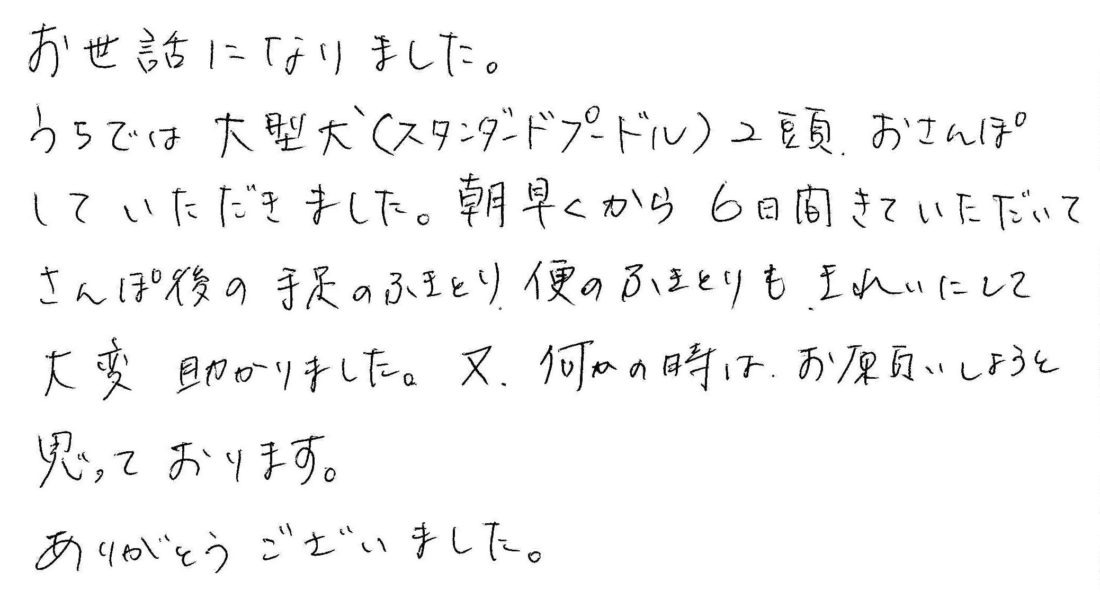 お世話になりました。
うちでは大型犬(スタンダードプードル)2頭、おさんぽ
していただきました。朝早くから6日間きていただいて
さんぽ後の手足のふきとり、便のふきとりも、きれいにして
大変助かりました。又、何かの時は、お願いしようと
思っております。
ありがとうございました。